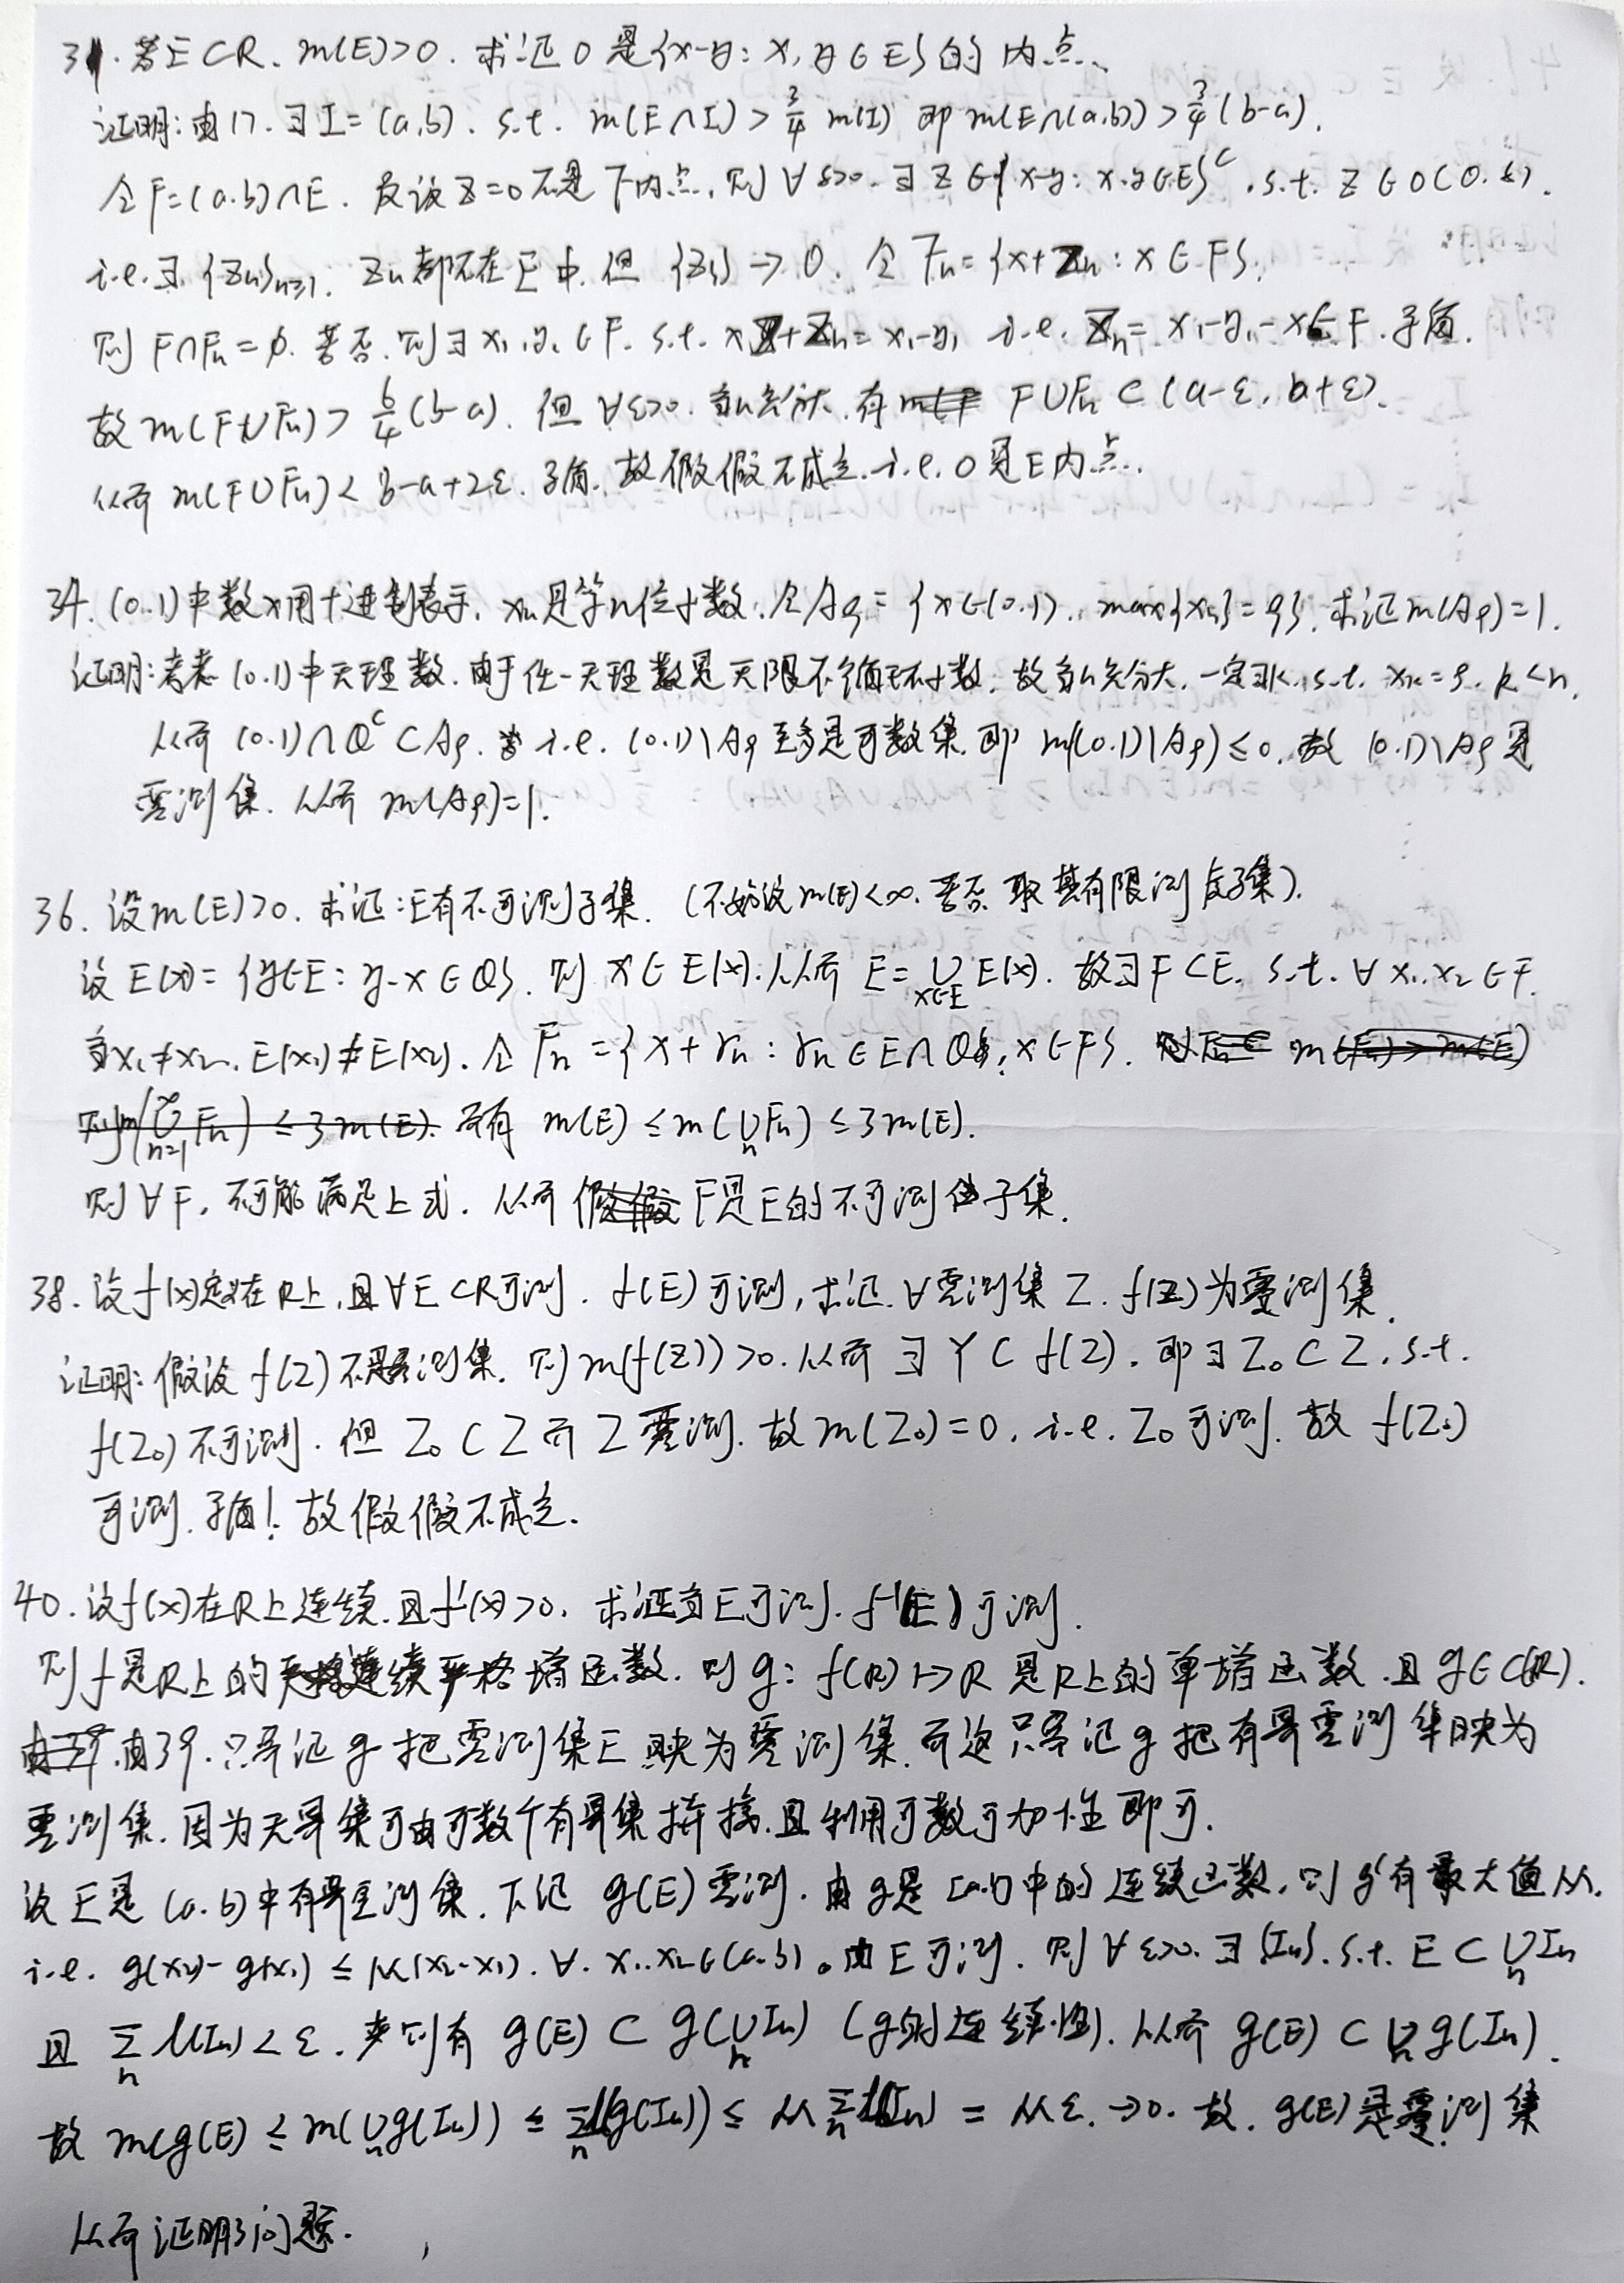 31. 若E⊂R. m(E)>0. 求证 0 是{x-y: x, y∈E}的内点.
证明: 由17. ∃I=(a,b). s.t. m(E∩I)>3/4 m(I) 即m(E∩(a,b))>3/4(b-a).
令F=(a.b)∩E. 反设z=0不是下内点, 则∀ε>0. ∃z∈{x-y: x.y∈E}^c. s.t. z∈O(0.ε).
i.e.∃. {Zn}n≥1. Zn都不在E中. 但{Zn}→0. 令Fn={x+Zn: x∈F}.
则F∩Fn=∅. 若否. 则∃x₁.y₁∈F. s.t. x+Zn=x₁-y₁ i.e. Zn=x₁-y₁-x∈F.矛盾.
故m(F∪Fn)>6/4(b-a). 但∀ε>0. 当n充分大.有 F∪Fn⊂(a-ε, b+ε).
从而m(F∪Fn)<b-a+2ε. 矛盾. 故假设不成立. i.e. 0是E内点.
34. (0.1)中数x用十进制表示. xn是第n位小数. 令A9={x∈(0.1).. max{xn}=9}. 求证m(A9)=1.
证明: 考虑(0.1)中无理数. 由于任一无理数是无限不循环小数. 故当n充分大. 一定∃k. s.t. xk=9. k<n.
从而(0.1)∩Q^c⊂A9. i.e. (0.1)\A9至多是可数集. 即m((0.1)\A9)≤0. 故(0.1)\A9是
零测集. 从而m(A9)=1.
36. 设m(E)>0. 求证: E有不可测子集. (不妨设m(E)<∞. 若否. 取其有限测度子集).
设E(x)={y∈E: y-x∈Q}. 则x∈E(x). 从而E=∪x∈E E(x). 故∃F⊂E. s.t. ∀x₁.x₂∈F.
当x₁≠x₂. E(x₁)≠E(x₂). 令Fn={x+rn: rn∈E∩Q, x∈F}.
而有m(E)≤m(∪n Fn)≤3m(E).
则∀F, 不可能满足上式. 从而 F是E的不可测子集.
38. 设f(x)定义在R上, 且∀E⊂R可测. f(E)可测, 求证. ∀零测集Z. f(Z)为零测集.
证明: 假设f(Z)不是零测集. 则m(f(Z))>0. 从而∃Y⊂f(Z). 即∃Z₀⊂Z. s.t.
f(Z₀)不可测. 但Z₀⊂Z而Z零测. 故m(Z₀)=0. i.e. Z₀可测. 故f(Z₀)
可测. 矛盾! 故假设不成立.
40. 设f(x)在R上连续. 且f'(x)>0. 求证当E可测. f⁻¹(E)可测.
则f是R上的连续严格增函数. 则g: f(R)↦R是R上的单增函数. 且g∈C(R).
由39. 只需证g把零测集E映为零测集. 而这只需证g把有界零测集映为
零测集. 因为无界集可由可数个有界集拼接. 且利用可数可加性即可.
设E是(a.b)中有界零测集. 下证g(E)零测. 由g是[a.b]中的连续函数, 则g'有最大值M.
i.e. g(x₂)-g(x₁)≤M(x₂-x₁). ∀. x₁.x₂∈(a.b). 由E可测. 则∀ε>0. ∃{In}. s.t. E⊂∪n In
且 Σn l(In)<ε. 则有g(E)⊂g(∪n In) (g的连续性). 从而g(E)⊂∪n g(In).
故m(g(E)≤m(∪n g(In))≤Σn l(g(In))≤MΣn l(In)=Mε.→0. 故. g(E)是零测集
从而证明了问题.